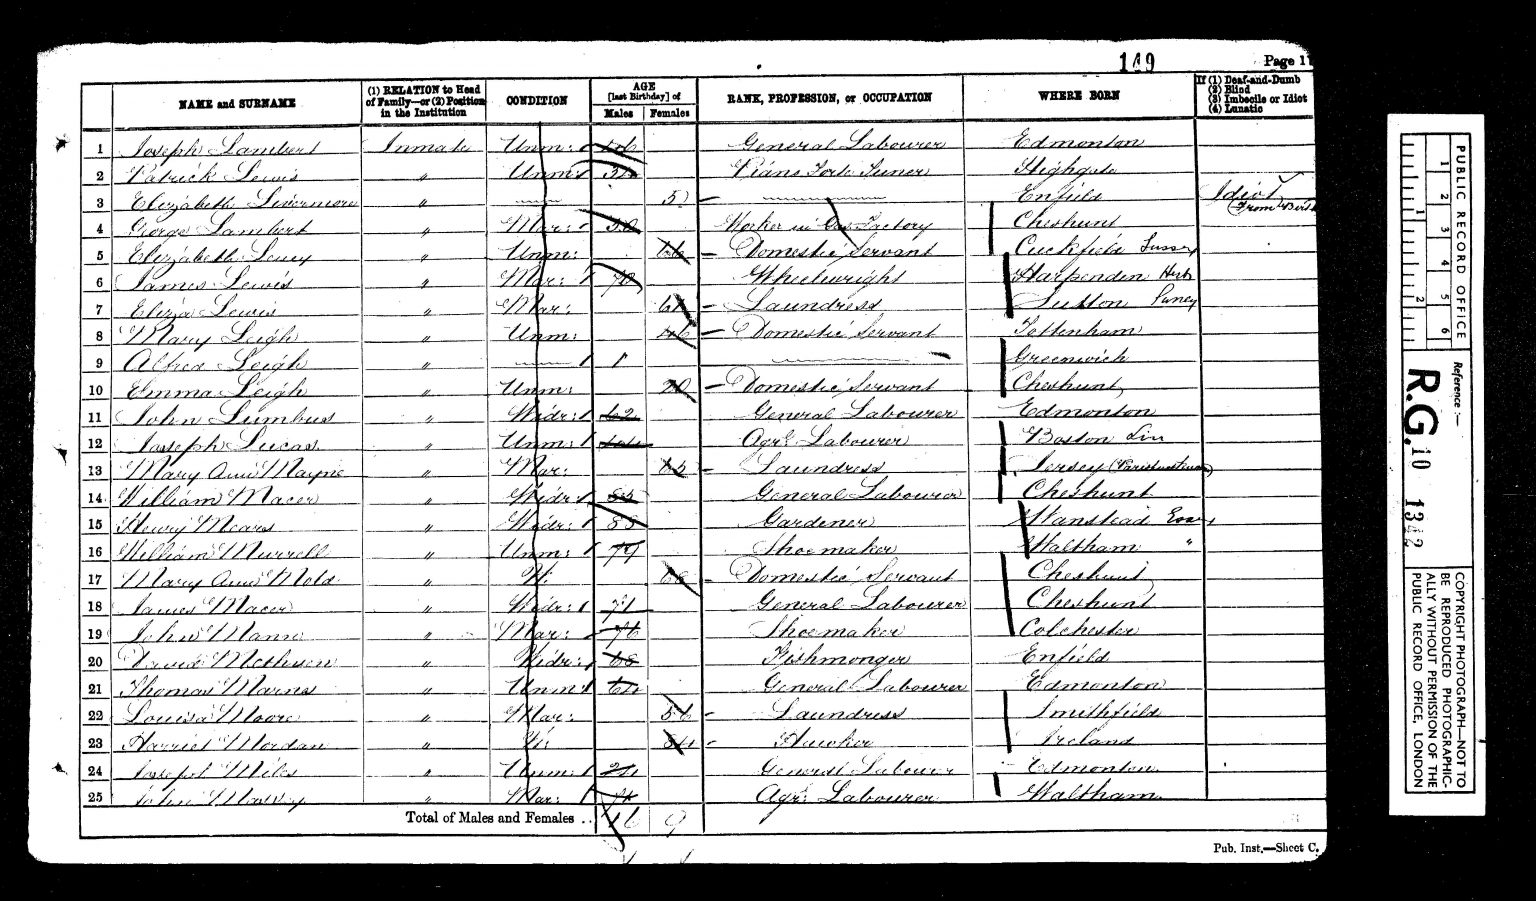 149
Page 1
NAME and SURNAME (1) RELATION to Head of Family—or (2) Position in the Institution CONDITION AGE [last Birthday] of Males Females RANK, PROFESSION, or OCCUPATION WHERE BORN If (1) Deaf-and-Dumb (2) Blind (3) Imbecile or Idiot (4) Lunatic
1 Joseph Lambert Inmate Unm: General Labourer Edmonton
2 Patrick Lewis " Unm: Piano Forte Tuner Highgate
3 Elizabeth Livermore " 5 Enfield Idiot From Birth
4 George Lambert " Mar: Worker in Gas Factory Cheshunt
5 Elizabeth " Unm: 66 Domestic Servant Cuckfield Sussex
6 James Lewis " Mar: 70 Wheelwright Harpenden Herts
7 Eliza Lewis " Mar: Laundress Sutton Surrey
8 Mary Leigh " Unm: 46 Domestic Servant Tottenham
9 Alfred Leigh " 1 Greenwich
10 Emma Leigh " Unm: 20 Domestic Servant Cheshunt
11 John Lumbus " Widr: 62 General Labourer Edmonton
12 Joseph Lucas " Unm: 44 Agrl Labourer Boston Lin
13 Mary Ann Mayne " Mar: Laundress Jersey
14 William Macer " Widr: General Labourer Cheshunt
15 Henry Mears " Widr: Gardener Wanstead Essex
16 William Murrell " Unm: Shoemaker Waltham "
17 Mary Ann Mold " W: Domestic Servant Cheshunt
18 James Macer " Widr: 71 General Labourer Cheshunt
19 John " Mar: 76 Shoemaker Colchester
20 David " Widr: 68 Fishmonger Enfield
21 Thomas " Unm: General Labourer Edmonton
22 Louisa Moore " Mar: 56 Laundress Smithfield
23 Harriet Mordan " W: 84 Hawker Ireland
24 Joseph Miles " Unm: General Labourer Edmonton
25 John " Mar: Agrl Labourer Waltham
Total of Males and Females .. 16 9
Pub. Inst.—Sheet C.
PUBLIC RECORD OFFICE
1 2 3 4 5 6
1 2
Reference :—
R.G. 10 1342
COPYRIGHT PHOTOGRAPH—NOT TO
BE REPRODUCED PHOTOGRAPHIC-
ALLY WITHOUT PERMISSION OF THE
PUBLIC RECORD OFFICE, LONDON